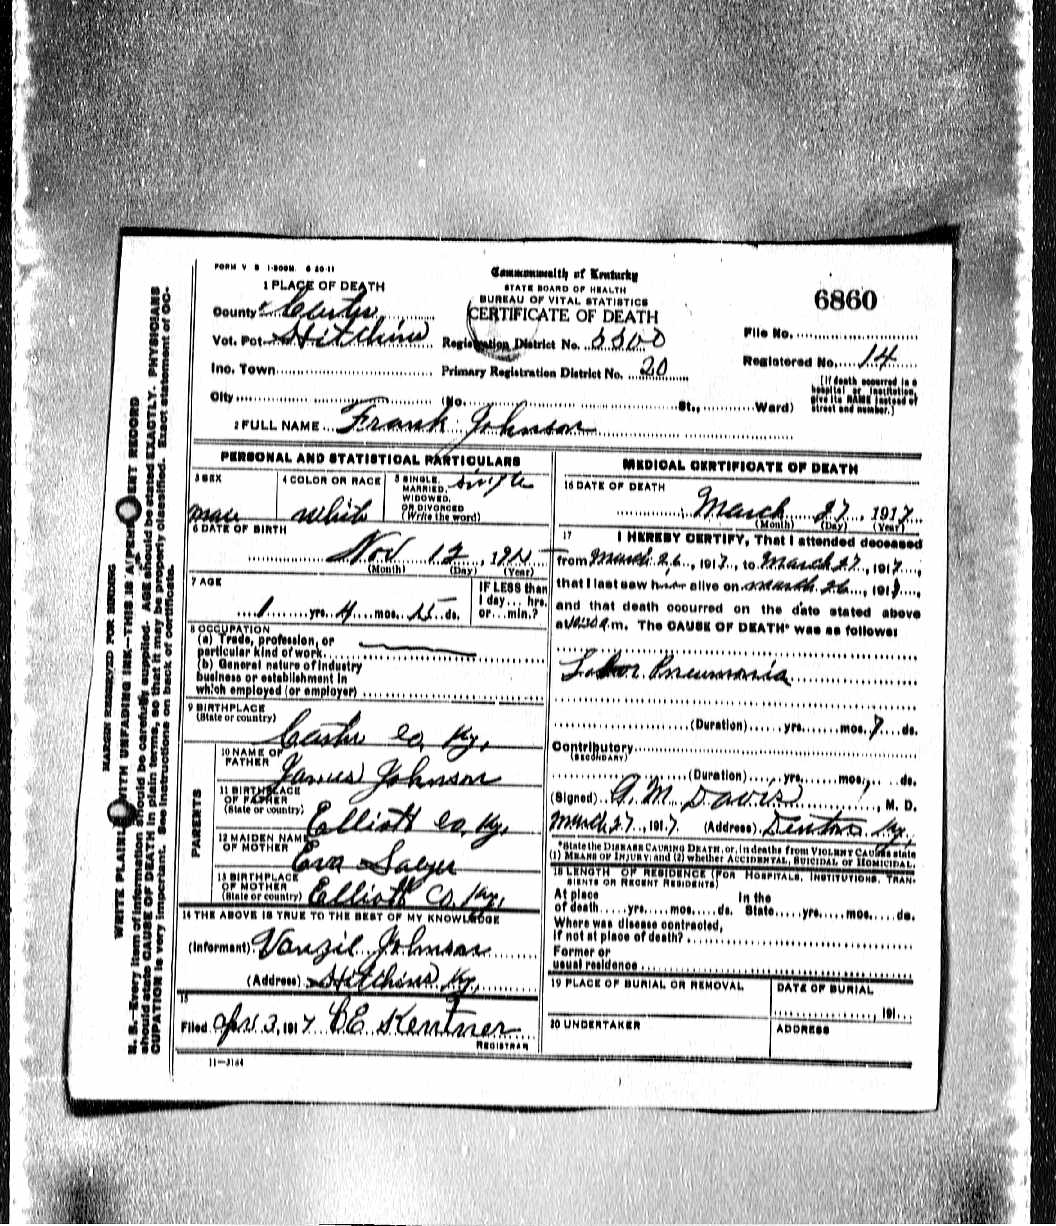 FORM V S 1-500M. 6 20-11
1 PLACE OF DEATH
County Carter
Vot. Pct. Hitchins
Ino. Town
City
Commonwealth of Kentucky
STATE BOARD OF HEALTH
BUREAU OF VITAL STATISTICS
CERTIFICATE OF DEATH
Registration District No. 5500
Primary Registration District No. 20
(No. St., Ward)
6860
File No.
Registered No. 14
[If death occurred in a
hospital or institution,
give its NAME instead of
street and number.]
2 FULL NAME Frank Johnson
PERSONAL AND STATISTICAL PARTICULARS
3 SEX
4 COLOR OR RACE white
5 SINGLE, single
MARRIED,
WIDOWED,
OR DIVORCED
(Write the word)
6 DATE OF BIRTH
Nov 12, 191
(Month) (Day) (Year)
7 AGE
1 yrs. 4 mos. 15 ds.
IF LESS than
1 day... hrs.
or...min.?
8 OCCUPATION
(a) Trade, profession, or
particular kind of work
(b) General nature of industry
business or establishment in
which employed (or employer)
9 BIRTHPLACE
(State or country)
Carter Co, Ky,
PARENTS
10 NAME OF
FATHER James Johnson
11 BIRTHPLACE
OF FATHER
(State or country) Elliott Co, Ky,
12 MAIDEN NAME
OF MOTHER Eva
13 BIRTHPLACE
OF MOTHER
(State or country) Elliott Co. Ky,
14 THE ABOVE IS TRUE TO THE BEST OF MY KNOWLEDGE
(Informant) Vanzil Johnson
(Address) Hitchins Ky,
15
Filed Apr 3, 1917 Kentner
REGISTRAR
11-3164
MEDICAL CERTIFICATE OF DEATH
16 DATE OF DEATH
March 27, 1917
(Month) (Day) (Year)
17 I HEREBY CERTIFY, That I attended deceased
from March 26, 1917, to March 27, 1917,
that I last saw him alive on March 26, 191
and that death occurred on the date stated above
at m. The CAUSE OF DEATH* was as follows:
Lobar Pneumonia
(Duration) yrs. mos. 7 ds.
Contributory
(SECONDARY)
(Duration) yrs. mos. ds.
(Signed) G. M. Davis, M. D.
March 27, 1917 (Address) Denton Ky,
*State the DISEASE CAUSING DEATH, or, in deaths from VIOLENT CAUSES state
(1) MEANS OF INJURY; and (2) whether ACCIDENTAL, SUICIDAL or HOMICIDAL.
18 LENGTH OF RESIDENCE (FOR HOSPITALS, INSTITUTIONS, TRAN-
SIENTS OR RECENT RESIDENTS)
At place In the
of death yrs. mos. ds. State yrs. mos. ds.
Where was disease contracted,
if not at place of death?
Former or
usual residence
19 PLACE OF BURIAL OR REMOVAL
DATE OF BURIAL
, 191
20 UNDERTAKER
ADDRESS
MARGIN RESERVED FOR BINDING
WRITE PLAINLY WITH UNFADING INK—THIS IS A PERMANENT RECORD
N. B.—Every item of information should be carefully supplied. AGE should be stated EXACTLY. PHYSICIANS
should state CAUSE OF DEATH in plain terms, so that it may be properly classified. Exact statement of OC-
CUPATION is very important. See instructions on back of certificate.